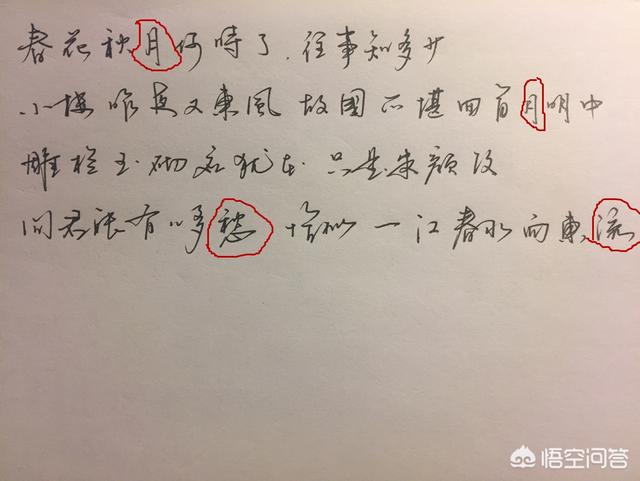 春花秋月何時了．往事知多少
小楼昨夜又東風 故國不堪回首月明中
雕栏玉砌应犹在 只是朱颜改
问君能有几多愁 恰似一江春水向東流
悟空问答